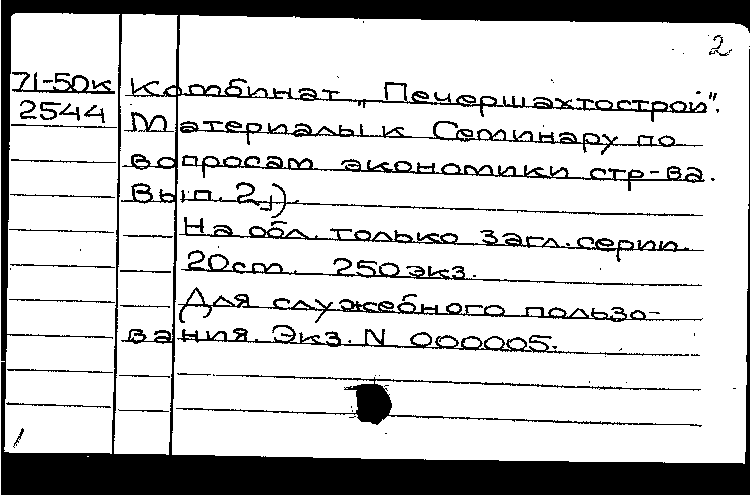 2
71-50к Комбинат „Печоршахтострой".
2544 Материалы к Семинару по
вопросам экономики стр-ва.
Вып. 2).
На обл. только загл. серии.
20cm. 250экз.
Для служебного пользо-
вания. Экз. N 000005.